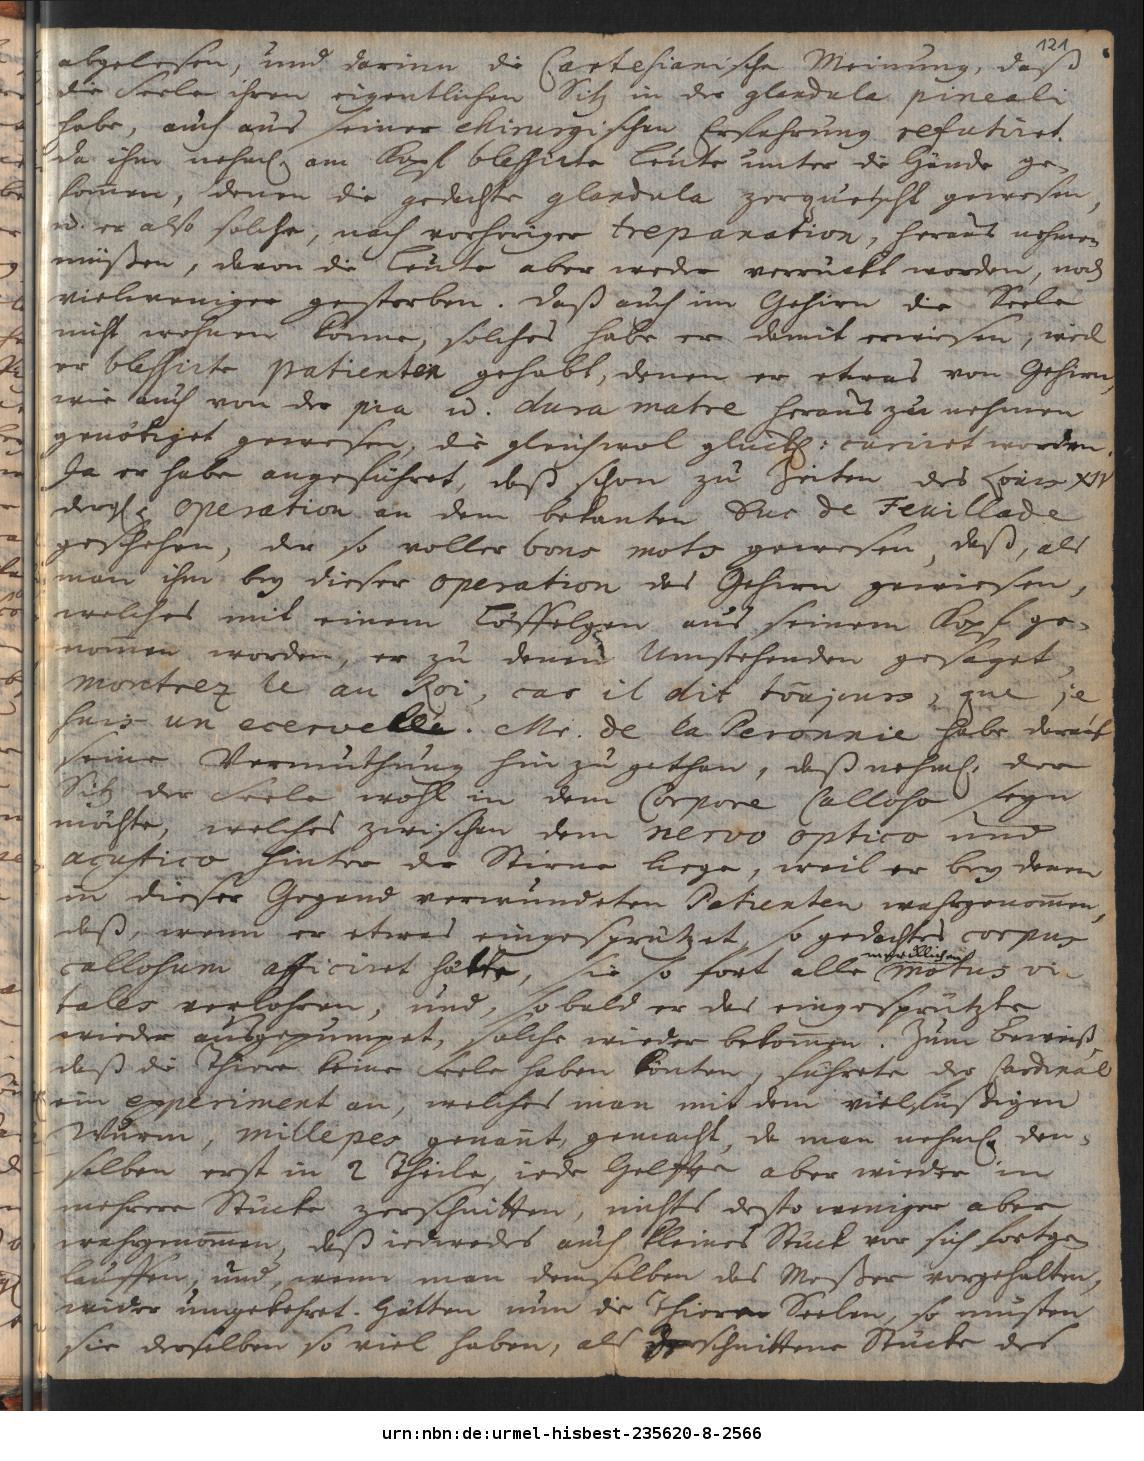 121
abgelesen, und darinn die Cartesianische Meinung, daß
die Seele ihren eigentlichen Sitz in der glandula pineali
habe, auch aus seiner chirurgischen Erfahrung refutiret.
da ihm nehml. am Kopf blessirte Leute unter die Hände ge-
kom̄en, denen die gedachte glandula zerquetscht gewesen,
u. er also solche, nach vorheriger trepanation, heraus nehmen
müßen, davon die Leute aber weder verrückt worden, noch
vielweniger gestorben. Daß auch im Gehirn die Seele
nicht wohnen könne, solches habe er damit erwiesen, weil
er blessirte patienten gehabt, denen er etwas von Gehirn,
wie auch von der pia u. dura matre heraus zu nehmen
genötiget gewesen, die gleichwol glückl: curiret worden.
Ja er habe angeführet, daß schon zu Zeiten des Louis XIV
dergl. operation an dem bekanten Duc de Feuillade
geschehen, der so voller bons mots gewesen, daß, als
man ihm bey dieser operation das Gehirn gewiesen,
welches mit einem Löffelgen aus seinem Kopf ge-
nom̄en worden, er zu denen Umstehenden gesaget,
montrez le au Roi, car il dit toujours, que je
suis un ecervellé. Mr. de la Peronnie habe darauf
seine Vermuthung hinzu gethan, daß nehml. der
Sitz der Seele wohl in dem Corpore Calloso seyn
möchte, welches zwischen dem nervo optico und
acustico hinter der Stirne liege, weil er bey denen
in dieser Gegend verwundeten Patienten wahrgenom̄en,
daß, wenn er etwas eingesprützet, so gedachtes corpus
callosum afficiret hätte, sie so fort alle motus vi-
tales verlohren, und, so bald er das eingesprützte
wieder ausgepumpet, solche wieder bekom̄en. Zum Beweiß,
daß die Thiere keine Seele haben könten, führete der Cardinal
ein experiment an, welches man mit dem vielfüßigen
Wurm, millepes genañt, gemacht, da man nehml. den-
selben erst in 2 Theile, iede Helfte aber wieder in
mehrere Stücke zerschnitten, nichts desto weniger aber
wahrgenom̄en, daß iedwedes auch kleines Stück vor sich fortge-
lauffen, und, wenn man demselben das Meßer vorgehalten,
wider umgekehret. Hätten nun die Thiere Seelen, so müsten
sie derselben so viel haben, als zerschnittene Stücke des
urn:nbn:de:urmel-hisbest-235620-8-2566